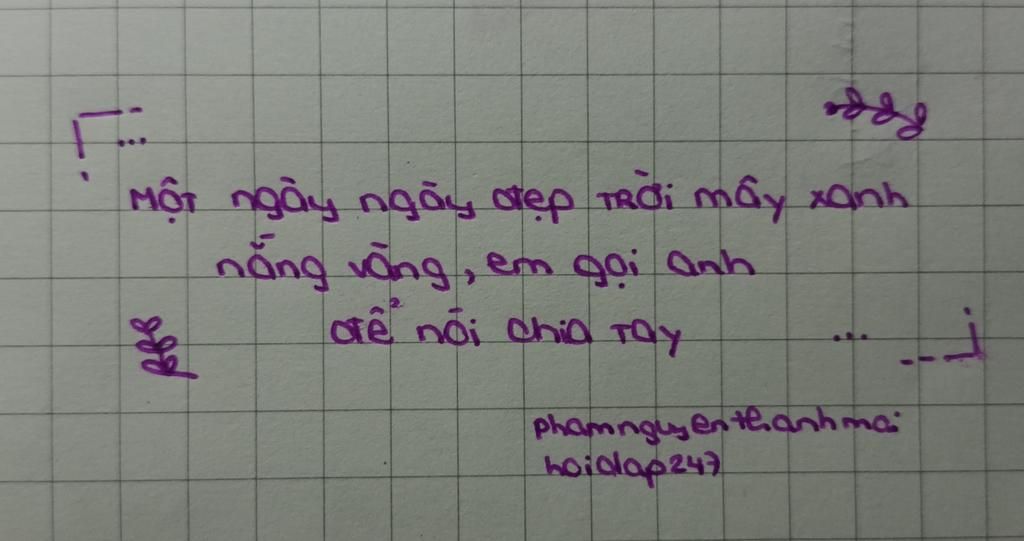 Một ngày ngày đẹp trời mây xanh
nắng vàng, em gọi anh
để nói chia tay ...
phamnguyenthanhmai
hoidap247